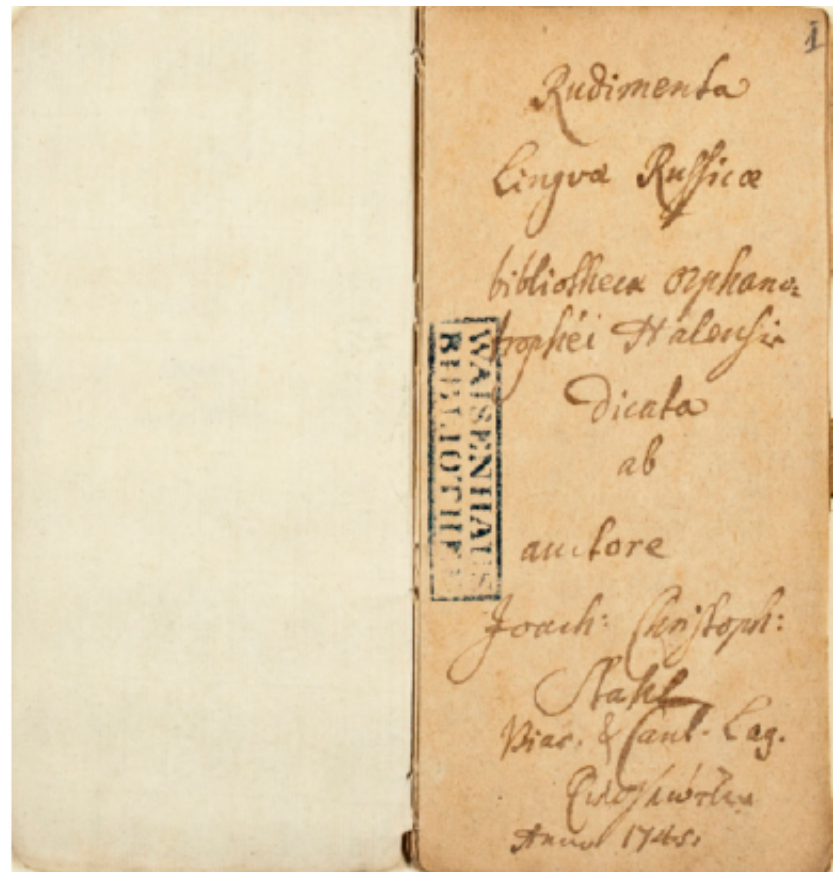 1
Rudimenta
Lingvæ Russicæ
bibliothecæ Orphano=
trophéi Halensis
dicata
ab
auctore
Joach: Christoph:
Stahl
& Cant.
Anno 1745.
WAISENHAUS
BIBLIOTHEK